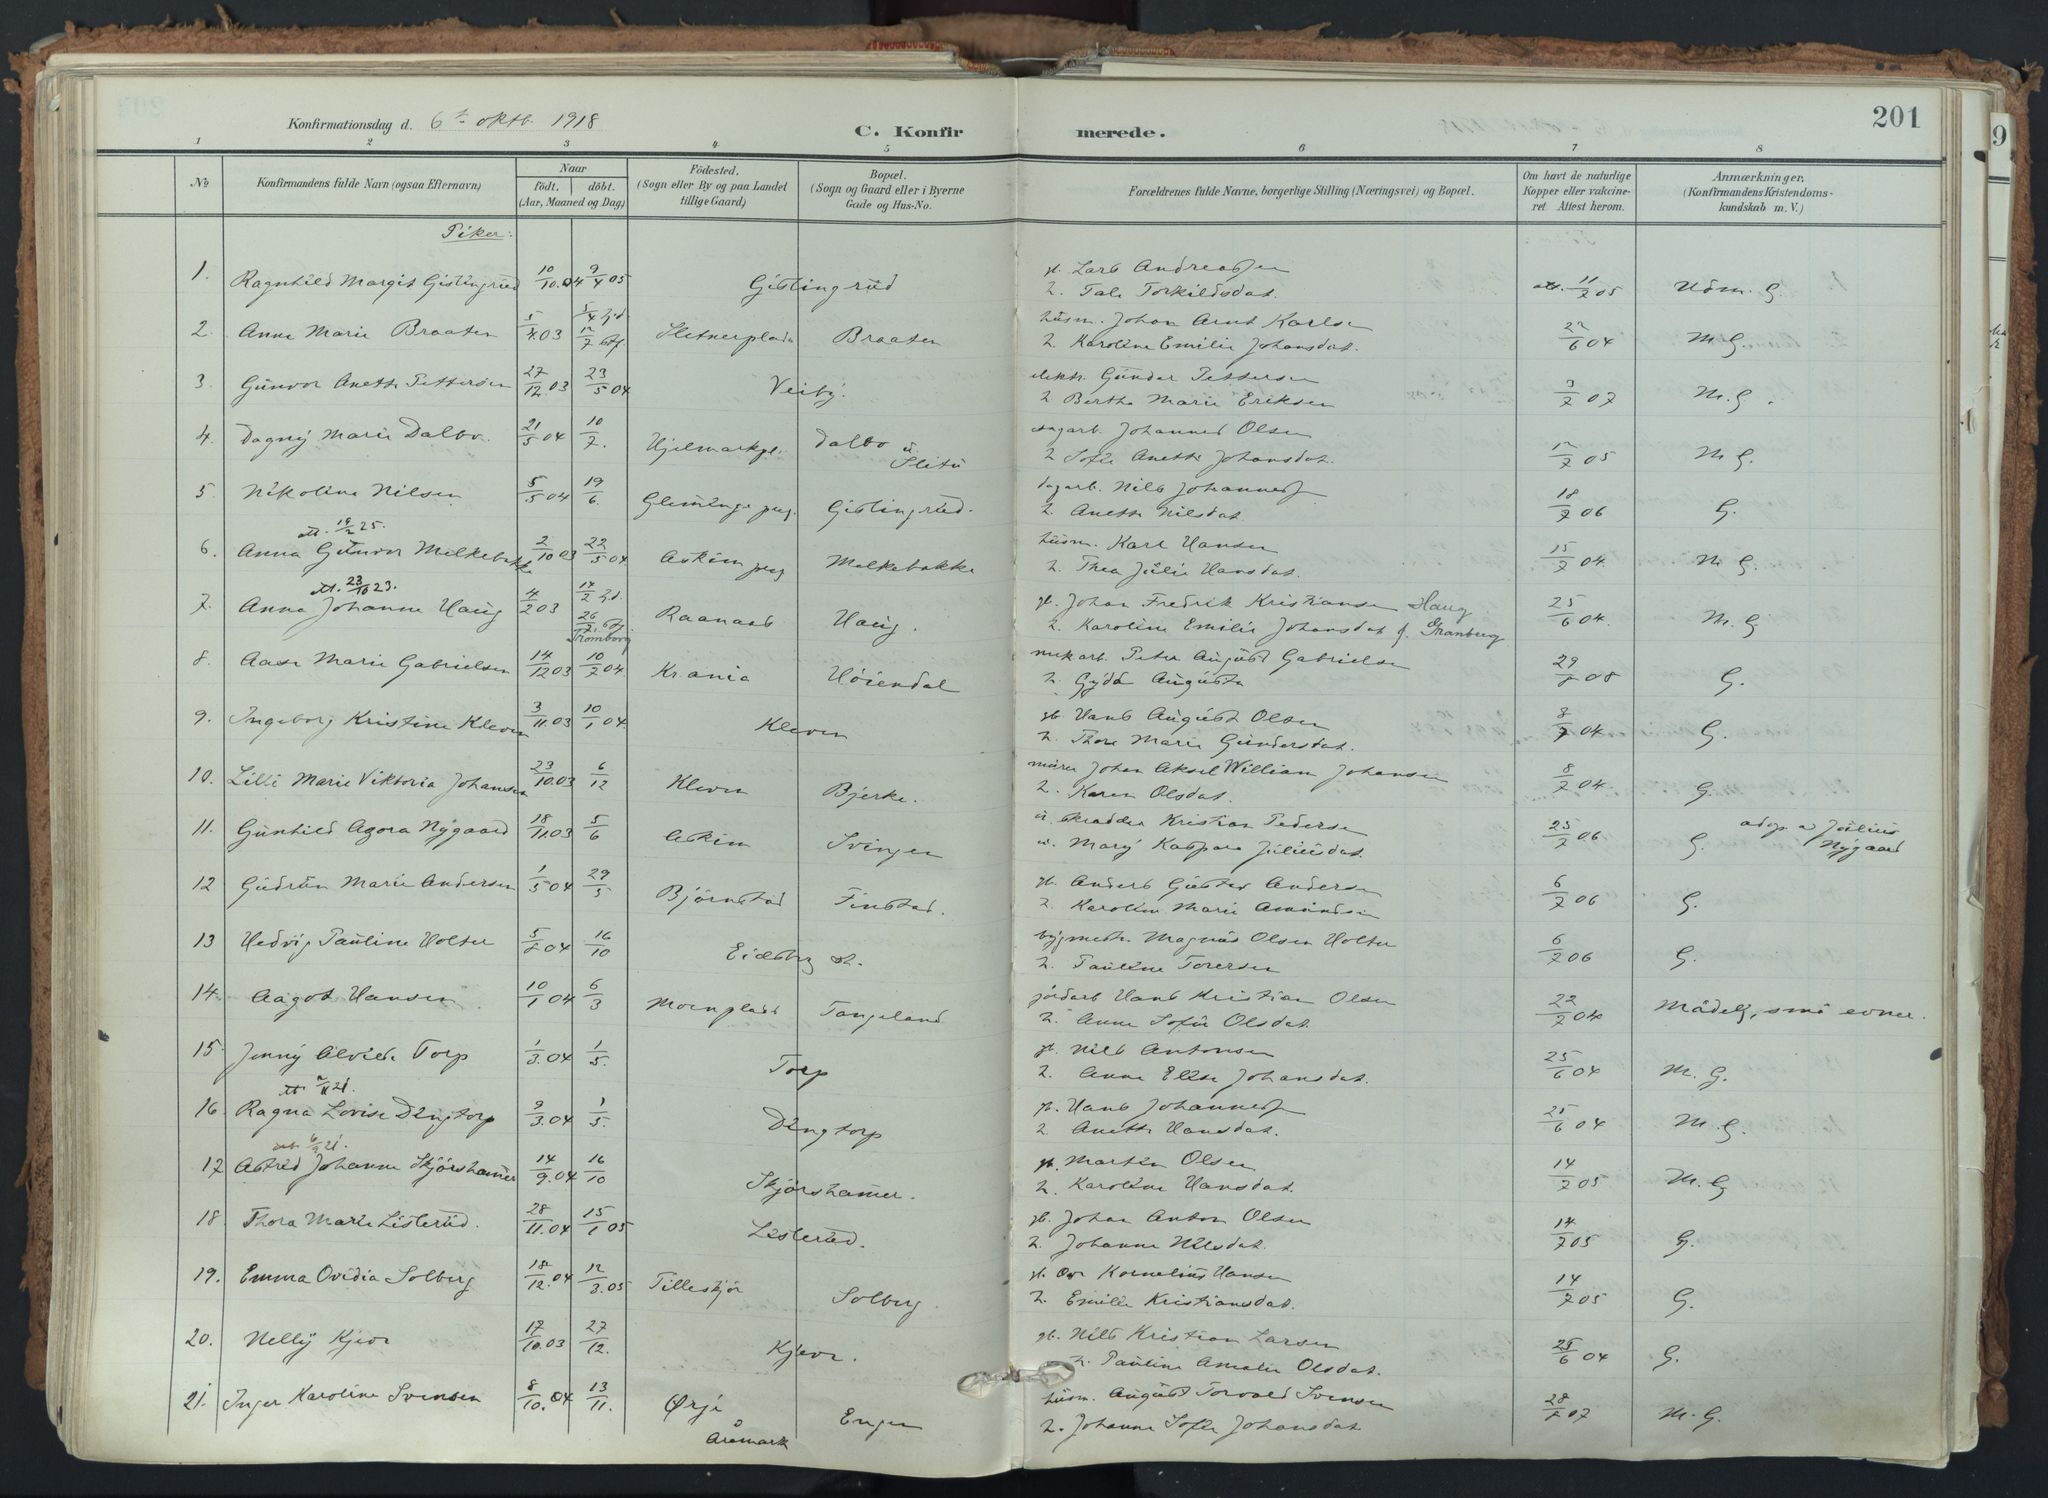 201
Konfirmationsdag d. 6te oktb. 1918
C. Konfirmerede.
1 2 3 4 5 6 7 8
No
Konfirmandens fulde Navn (ogsaa Efternavn)
Naar
födt. döbt.
(Aar, Maaned og Dag)
Födested.
(Sogn eller By og paa Landet
tillige Gaard)
Bopæl.
(Sogn og Gaard eller i Byerne
Gade og Hus-No.
Forældrenes fulde Navne, borgerlige Stilling (Næringsvei) og Bopæl.
Om havt de naturlige
Kopper eller vakcine-
ret Attest herom.
Anmærkninger,
(Konfirmandens Kristendoms-
kundskab m. V.)
Piker:
1. Ragnhild Margit Gistingrud 10/10.04 9/4 05 Gistingrud gb. Lars Andreassen att. 11/7 05 Udm. G.
2. Tale Torkildsdat.
2. Anne Marie Braaten 5/4.03 5/4 hjd. Sletnerplads Braaten husm. Johan Arnt Karlsen 22/6 04 M. G.
12/7 stf. 2. Karoline Emilie Johansdat.
3. Gunvor Anette Pettersen 27/12.03 23/5 04 Veiby. elektr. Gunder Pettersen 3/7 07 M. G.
2. Berthe Marie Eriksen
4. Dagny Marie Dalbo. 21/5 04 10/7. Hjelmarkpl. Dalbo u Slitu sagarb. Johannes Olsen 12/7 05 M. G.
2. Sofie Anette Johansdat.
5. Nikoline Nilsen 5/5 04 19/6. Glemminge preg. Gistingrud. dagarb. Nils Johanness. 18/7 06 G.
2. Anette Nilsdat.
att 19/2 25.
6. Anna Gunvor Melkebakke 2/10 03 22/5 04 Askim preg Melkebakke husm. Karl Hansen 15/7 04. M. G.
2. Thea Julie Hansdat.
att. 23/10 23.
7. Anna Johanne Haug 4/2 03 14/2 hjd. Raanaas Haug. gb. Johan Fredrik Kristiansen Haug 25/6 04. M. G.
26/7 stf. Trømborg 2. Karoline Emilie Johansdat f. Granberg
8. Aase Marie Gabrielsen 14/12 03 10/7 04. Krania Høiendal mekarb. Peter August Gabrielsen 29/8 08 G.
2. Gyda Augusta
9. Ingeborg Kristine Kleven 3/11.03 10/1 04. Kleven gb. Hans August Olsen 8/7 04 G.
2. Thora Marie Gundersdat.
10. Lilli Marie Viktoria Johansen 23/10.03 6/12 Kleven Bjerke. murer Johan Aksel William Johansen 8/7 04 G.
2. Karen Olsdat.
11. Gunhild Agora Nygaard 18/11.03 5/6 Askim Svingen u. skrædder Kristian Pedersen 25/7 06 G. adop. a Julius Nygaard
u. Mary Kaspara Juliusdat.
12 Gudrun Marie Andersen 1/5 04 29/5 Bjørnstad Finstad. gb. Anders Gustav Andersen 6/7 06 G.
2. Karoline Marie Amundsen
13 Hedvig Pauline Holter 5/8 04 16/10 Eidsberg st. bygmestr. Magnus Olsen Holter 6/7 06 G.
2. Pauline Toresen
14. Aagot Hansen 10/1 04 6/3 Moenplads Tangeland jordarb Hans Kristian Olsen 22/7 04 Mådelg, små evner.
2. Anne Sofie Olsdat.
15. Jenny Alvilde Torp 1/3.04 1/5. Torp gb. Nils Antonsen 25/6 04 M. G.
2. Anne Elise Johansdat.
att 2/11 21.
16. Ragna Lovise Dingtorp 9/3.04 1/5. Dingtorp gb. Hans Johanness. 25/6 04 M. G.
2. Anette Hansdat.
att 6/9 21
17 Astrid Johanne Skjørshamer 14/9.04 16/10 Skjørshamer. gb. Martin Olsen 14/7 05 M. G
2. Karoline Hansdat.
18. Thora Marie Listerud. 28/11.04 15/1 05 Listerud. gb. Johan Anton Olsen 14/7 05 G.
2. Johanne Nilsdat.
19. Emma Ovidia Solberg 18/12.04 12/3.05 Tilleskjør Solberg. gb. Ove Kornelius Hansen 14/7 05 G.
2. Emilie Kristiansdat.
20. Nelly Kjeve 17/10.03 27/12. Kjeve. gb. Nils Kristian Larsen 25/6 04 G.
2. Pauline Amalie Olsdat.
21. Inger Karoline Svensen 8/10.04 13/11. Ørje Aremark Enger husm. August Torvald Svensen 28/8 07 M. G.
2. Johanne Sofie Johansdat